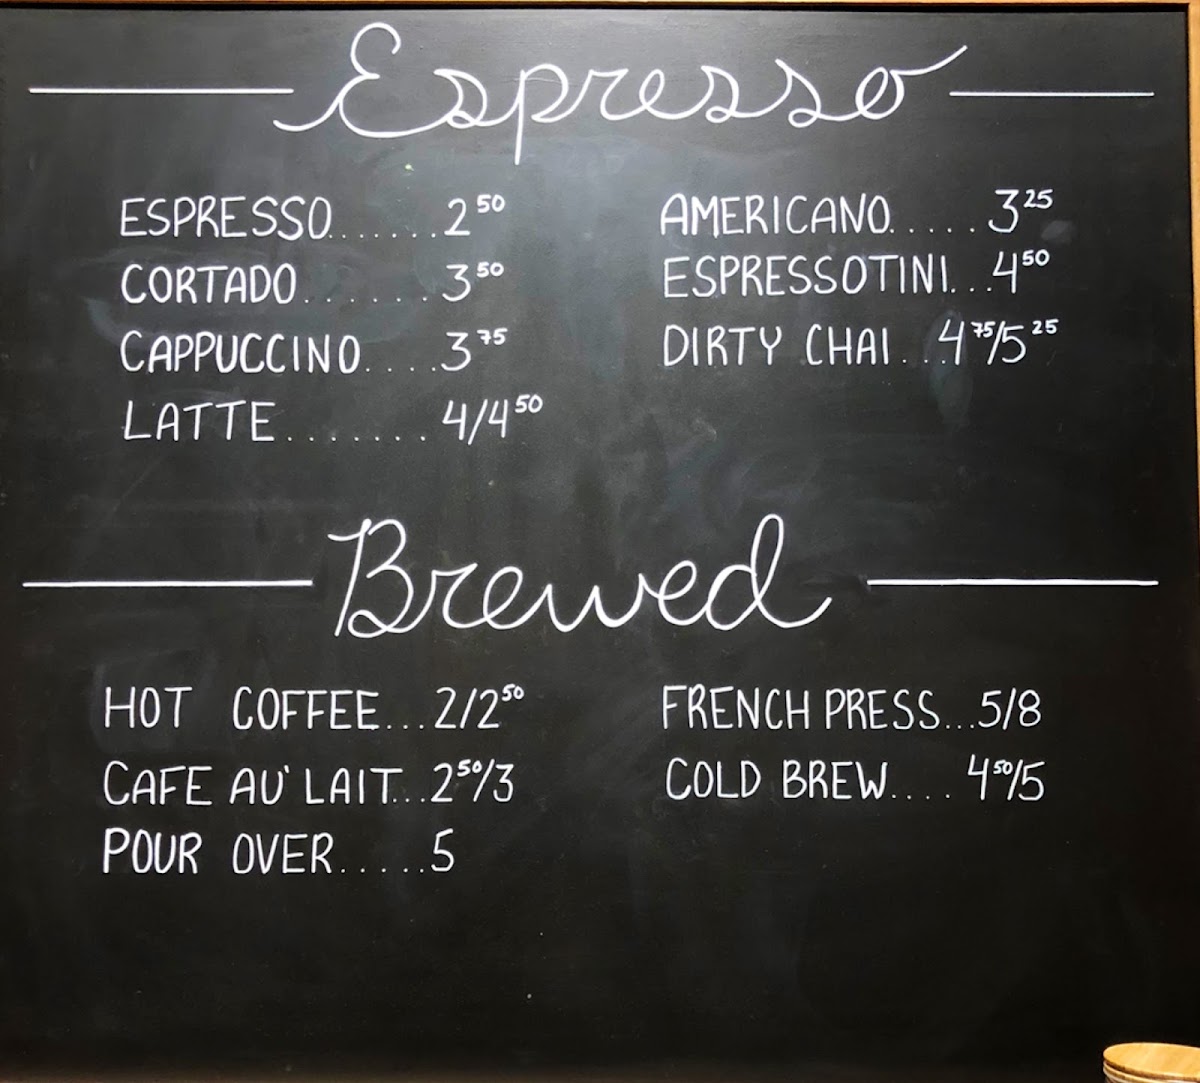 Espresso
ESPRESSO.......2 50
CORTADO.......3 50
CAPPUCCINO....3 75
LATTE........4/4 50
AMERICANO.....3 25
ESPRESSOTINI...4 50
DIRTY CHAI...4 75/5 25
Brewed
HOT COFFEE...2/2 50
CAFE AU' LAIT...2 50/3
POUR OVER.....5
FRENCH PRESS...5/8
COLD BREW.... 4 50/5